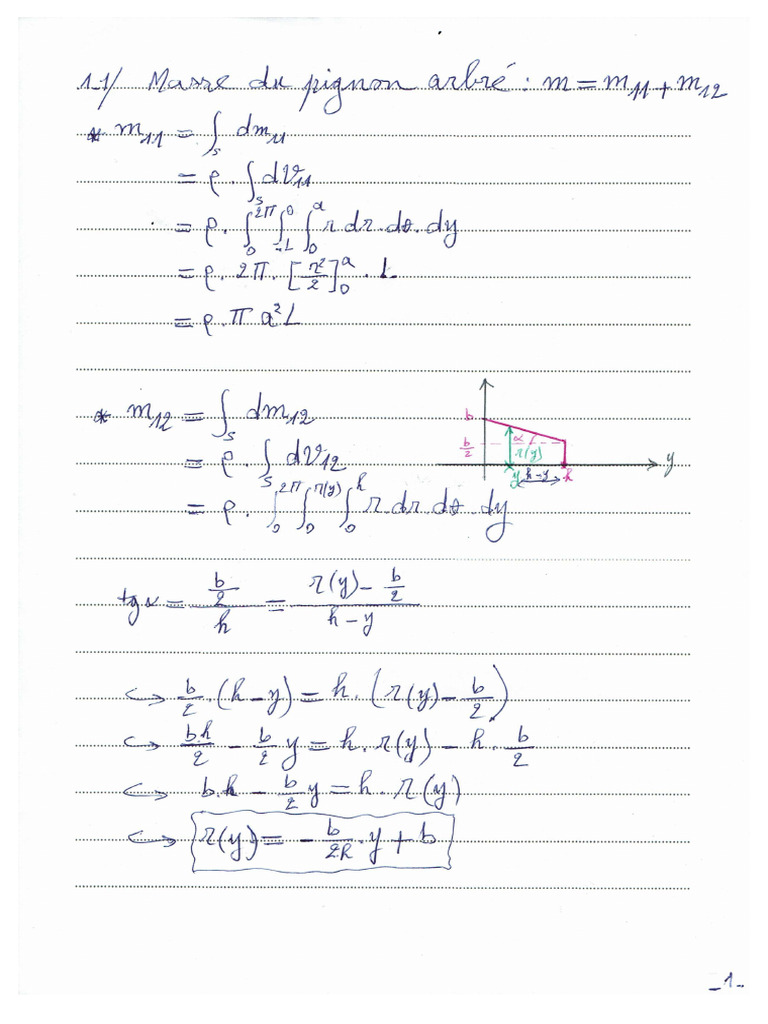 1.1/ Masse du pignon arbré : m = m₁₁ + m₁₂
* m₁₁ = ∫_S dm₁₁
= ρ . ∫_S dV₁₁
= ρ . ∫_0^{2π} ∫_{-L}^0 ∫_0^a r dr . dθ . dy
= ρ . 2π . [r²/2]_0^a . L
= ρ . π a² L
* m₁₂ = ∫_S dm₁₂
= ρ . ∫_S dV₁₂
= ρ . ∫_0^{2π} ∫_0^{r(y)} ∫_0^h r dr dθ . dy
b
b/2
α
r(y)
y
y
h-y
h
tgα = (b/2)/h = (r(y) - b/2)/(h - y)
↪ b/2 . (h - y) = h . (r(y) - b/2)
↪ b.h/2 - b/2 y = h . r(y) - h . b/2
↪ b.h - b/2 y = h . r(y)
↪ r(y) = - b/2h . y + b
-1-